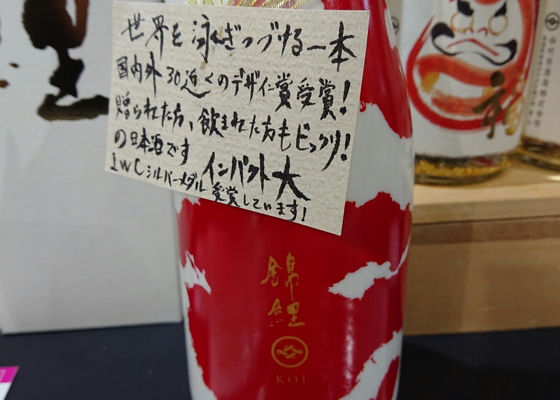 世界を泳ぎつづける一本
国内外30近くのデザイン賞受賞!
贈られた方、飲まれた方もビックリ!
の日本酒です
インパクト大
IWCシルバーメダル受賞しています!
錦鯉
KOI